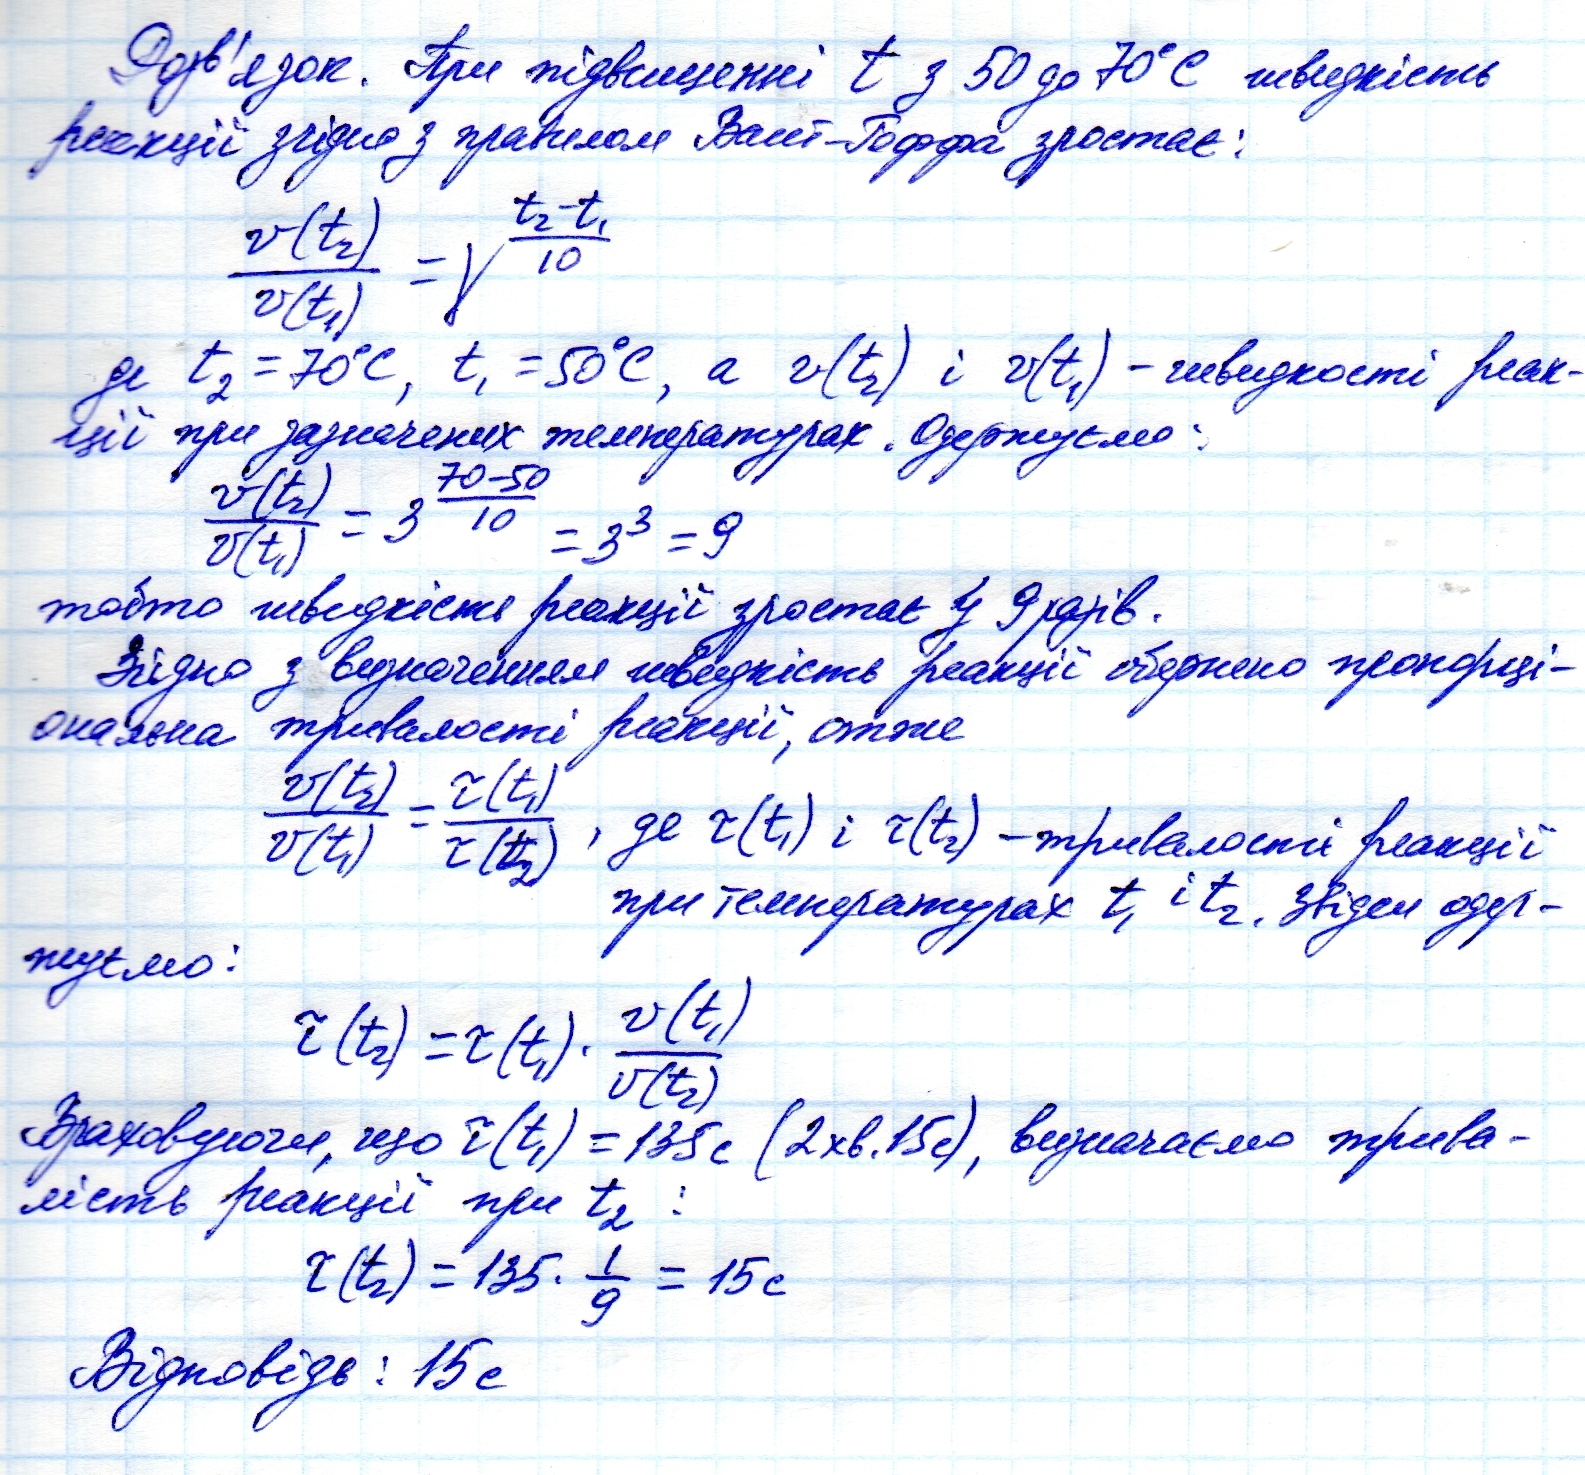 Розв'язок. При підвищенні t з 50 до 70°С швидкість
реакції згідно з правилом Вант-Гоффа зростає:
v(t₂)/v(t₁) = γ^((t₂-t₁)/10)
де t₂ = 70°С, t₁ = 50°С, а v(t₂) і v(t₁) – швидкості реак-
ції при зазначених температурах. Одержуємо:
v(t₂)/v(t₁) = 3^((70-50)/10) = 3³ = 9
тобто швидкість реакції зростає у 9 разів.
Згідно з визначенням швидкість реакції обернено пропорці-
ональна тривалості реакції, отже
v(t₂)/v(t₁) = τ(t₁)/τ(t₂), де τ(t₁) і τ(t₂) – тривалості реакції
при температурах t₁ і t₂. Звідси одер-
жуємо:
τ(t₂) = τ(t₁) · v(t₁)/v(t₂)
Враховуючи, що τ(t₁) = 135с (2хв.15с), визначаємо трива-
лість реакції при t₂:
τ(t₂) = 135 · 1/9 = 15с
Відповідь: 15с